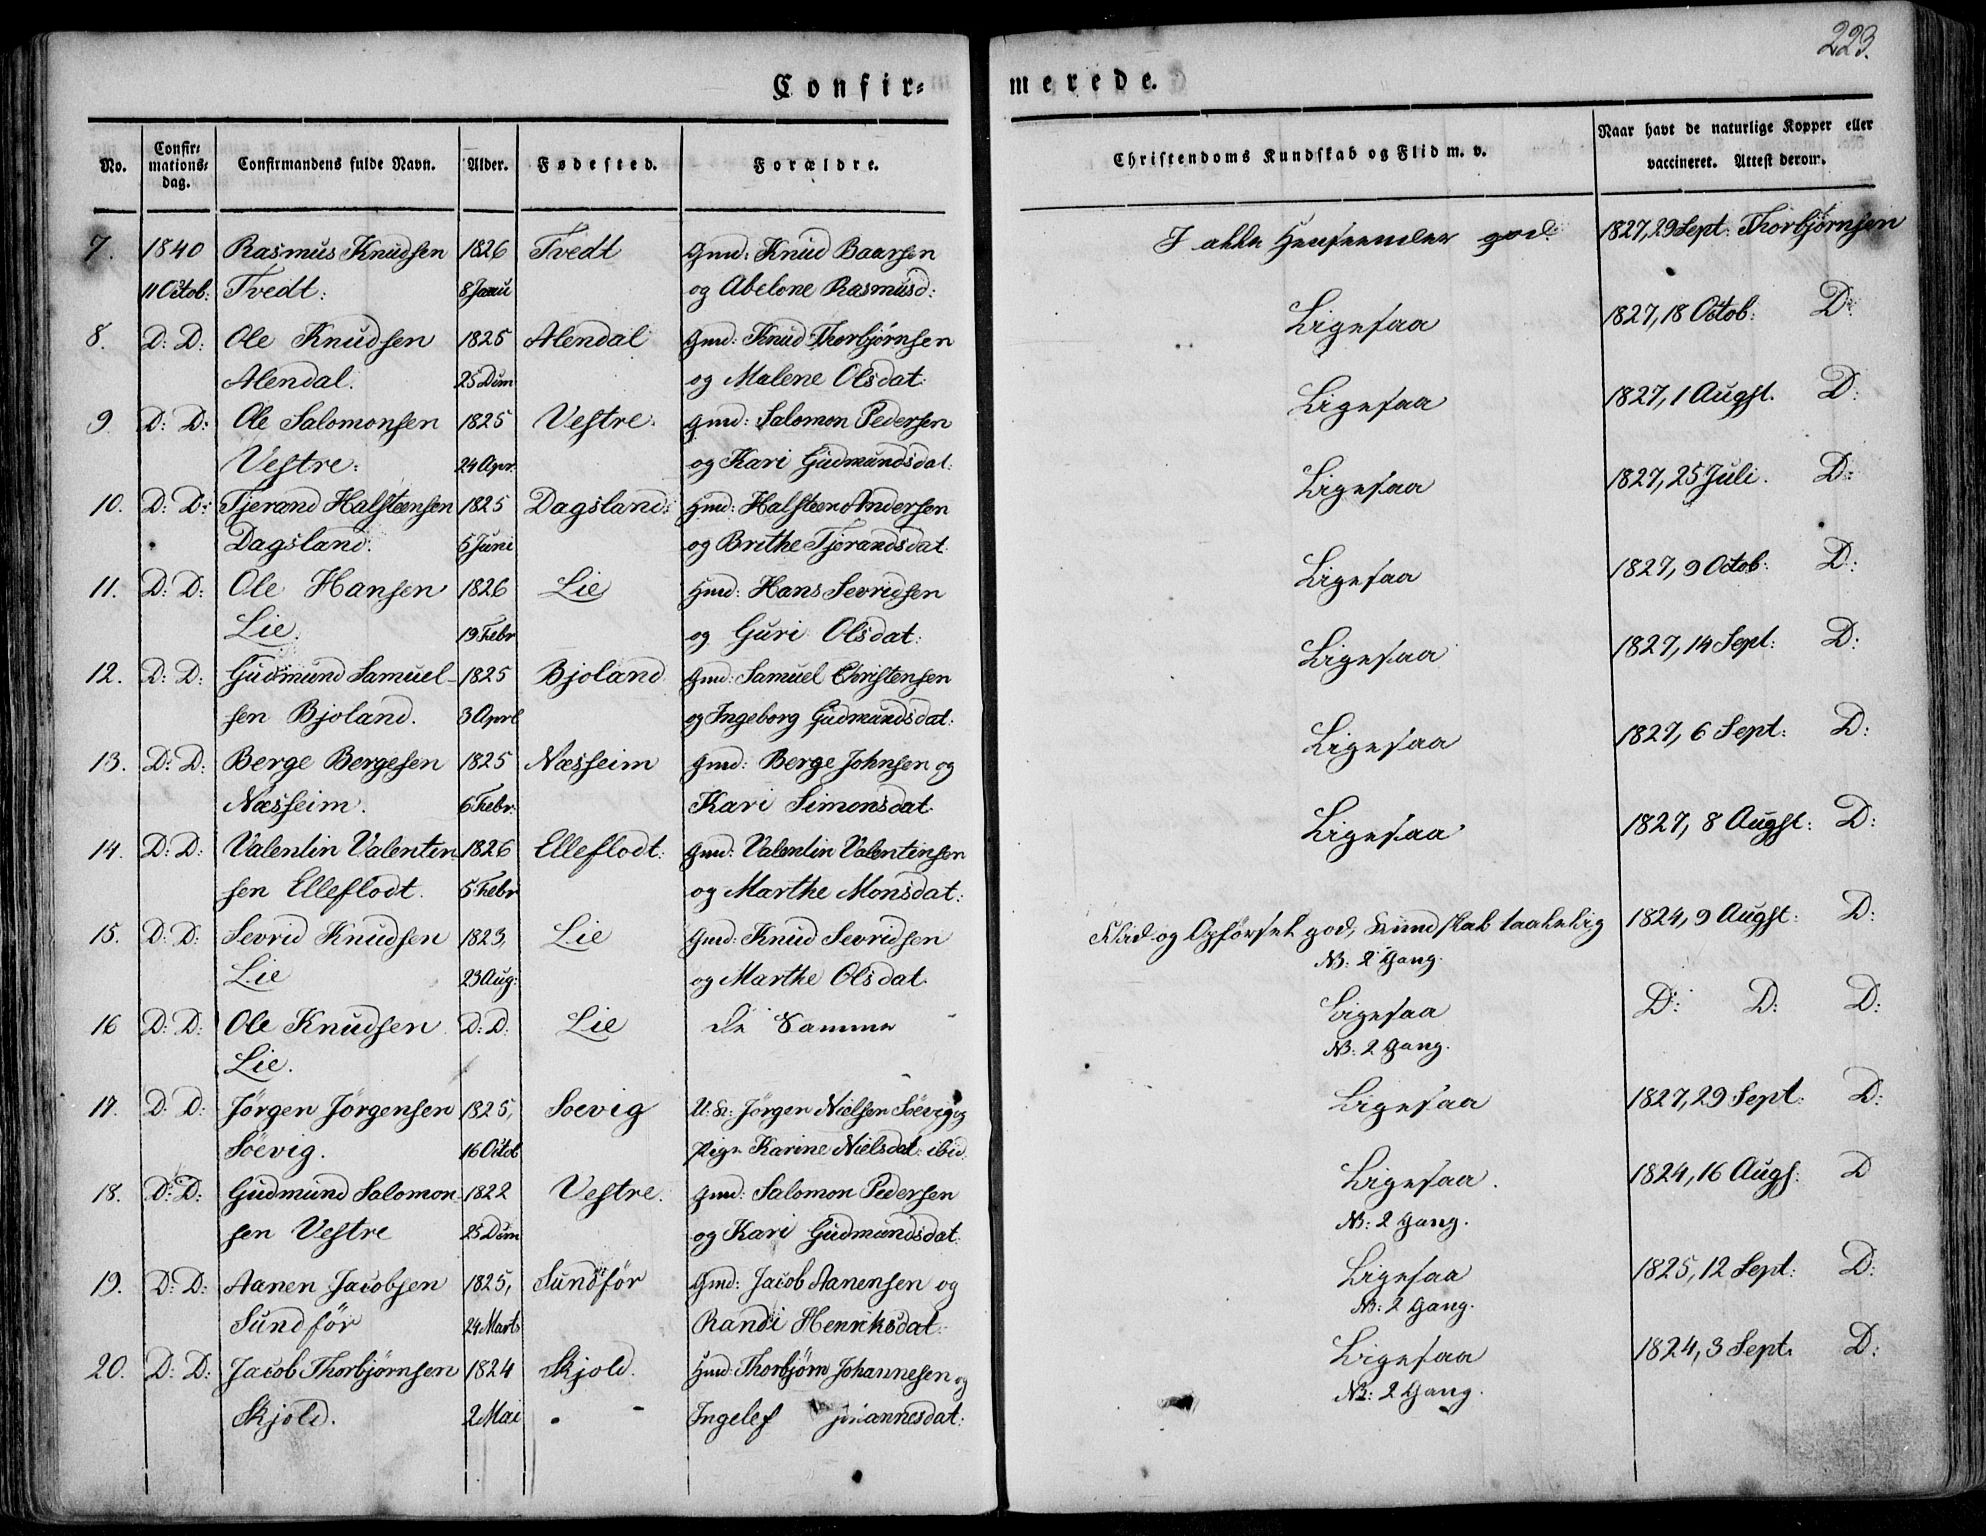 223.
Confir=
merede.
No. Confir= mations= dag. Confirmandens fulde Navn. Alder. Fødested. Forældre. Christendoms Kundskab og Flid m. v. Naar havt de naturlige Kopper eller vaccineret. Attest derom.
7. 1840 Rasmus Knudsen 1826 Tvedt Gmd: Knud Baarsen I alle Henseender god. 1827, 29 Sept: Thorbjørnsen
11 Octob: Tvedt: 8 Janu og Abelone Rasmusd:
8. D: D: Ole Knudsen 1825 Alendal Gmd: Knud Thorbjørnsen Ligesaa 1827, 18 Octob: D:
Alendal. 25 Dcm og Malene Olsdat:
9. D: D: Ole Salomonsen 1825 Vestre. Gmd: Salomon Pedersen Ligesaa 1827, 1 Augst. D:
Vestre: 24 Apr. og Kari Gudmundsdat:
10. D: D: Tjerand Halsteensen 1825 Dagsland: Gmd: Halsteen Andersen Ligesaa 1827, 25 Juli. D:
Dagsland. 5 Juni og Brithe Tjerandsdat
11. D: D: Ole Hansen 1826 Lie Hmd: Hans Sevridsen Ligesaa 1827, 9 Octob: D:
Lie. 19 Febr og Guri Olsdat:
12. D: D: Gudmund Samuel- 1825 Bjoland Gmd: Samuel Christensen Ligesaa 1827, 14 Sept: D:
sen Bjoland. 3 Aprl og Ingeborg Gudmundsdat:
13. D: D: Berge Bergesen 1825 Næsheim Gmd: Berge Johnsen og Ligesaa 1827, 6 Sept: D:
Næsheim. 6 Febr: Kari Simonsdat
14. D: D: Valentin Valentin 1826 Elleflodt: Gmd: Valentin Valentinsen Ligesaa 1827, 8 Augst: D:
sen Elleflodt. 5 Febr og Marthe Monsdat:
15. D: D: Sevrid Knudsen 1823, Lie Gmd: Knud Sevridsen Flid og Opførsel god, Kundskab taalelig 1824, 9 Augst: D:
Lie 23 Aug: og Marthe Olsdat. NB: 2 Gang.
16 D: D: Ole Knudsen D: D: Lie de Samme Ligesaa D: D: D:
Lie. NB: 2 Gang.
17. D: D: Jörgen Jörgensen 1825, Soevig U. K: Jörgen Nielsen Söevig og Ligesaa 1827, 29 Sept: D:
Söevig. 16 Octob Pige Karine Nielsdat: ibid.
18. D: D: Gudmund Salomon- 1822 Vestre. Gmd: Salomon Pedersen Ligesaa. 1824, 16 Augs: D
sen Vestre 25 Dcm og Kari Gudmundsdat: NB: 2 Gang.
19. D: D: Aanen Jacobsen 1825, Sundför Gmd: Jacob Aanensen og Ligesaa 1825, 12 Sept: D:
Sundför 24 Marts Randi Henriksdat: NB: 2 Gang.
20. D: D: Jacob Thorbjørnsen 1824 Skjold. Hmd: Thorbjørn Johannesen og Ligesaa 1824, 3 Sept. D:
Skjold. 2 Mai Ingelef Johannesdat: NB: 2 Gang.